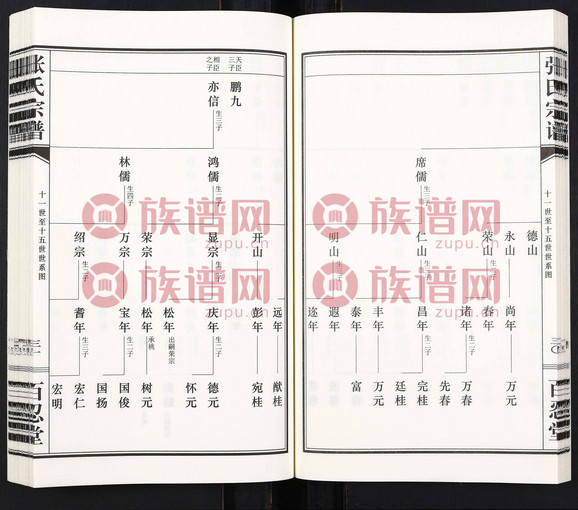 张氏宗谱
十一世至十五世世系图
百忍堂
席儒
生三子
德山
永山
荣山
生二子
仁山
生二子
明山
生三子
尚年
春年
诸年
生二子
昌年
生二子
丰年
泰年
遐年
迩年
万元
万春
先春
完桂
廷桂
万元
富
天臣
三子
鹏九
相臣
之子
亦信
生三子
鸿儒
生二子
林儒
生四子
开山
显宗
生一子
荣宗
万宗
生二子
绍宗
生一子
远年
彭年
庆年
生二子
松年
出嗣荣宗
松年
承桃
宝年
生二子
耆年
生三子
猷桂
宛桂
德元
怀元
树元
国俊
国扬
宏仁
宏明
张氏宗谱
十一世至十五世世系图
百忍堂
族谱网
zupu.cn
族谱网
zupu.cn
族谱网
zupu.cn
族谱网
zupu.cn